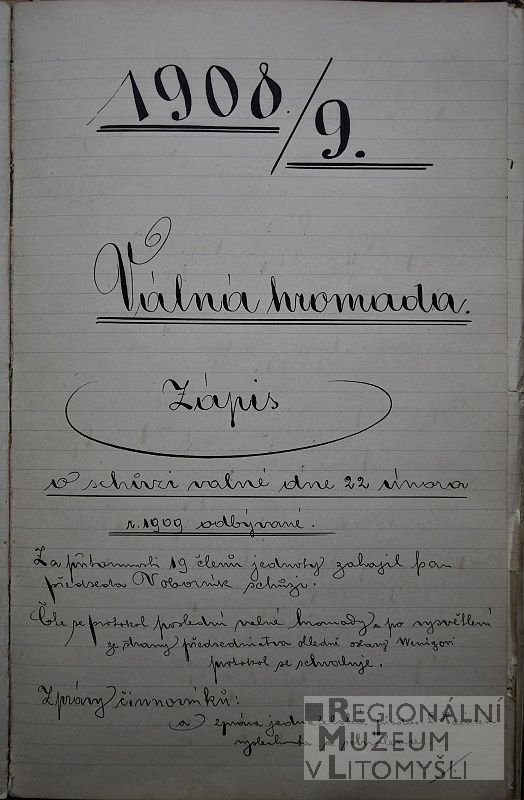 1908/9.
Válná hromada.
Zápis
o schůzi valné dne 22 února
r. 1909 odbývané.
Za přítomnosti 19 členů jednoty zahájil pan
předseda Voborník schůzi.
Čte se protokol poslední valné hromady a po vysvětlení
ze strany předsednictva ohledně Wenigovi
protokol se schvaluje.
Zprávy činovníků:
a zpráva
REGIONÁLNÍ
MUZEUM
V LITOMYŠLI